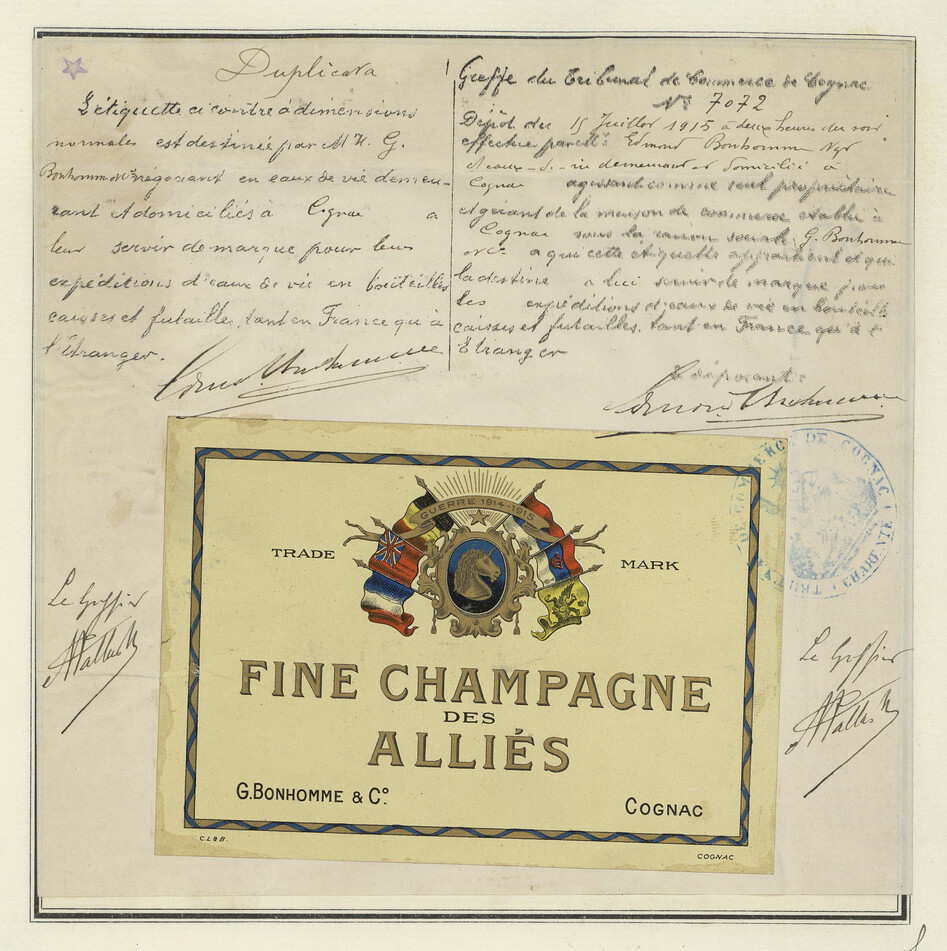 Duplicata
L'étiquette ci contre à dimensions
normales est destinée par M M. G.
Bonhomme & Cie négociant en eaux de vie demeu-
rant et domiciliés à Cognac a
leur servir de marque pour leurs
expéditions d'eaux de vie en bouteilles
caisses et futailles, tant en France qu'à
l'étranger.
Greffe du Tribunal de Commerce de Cognac
No 7072
Dépôt du 15 Juillet 1915 à deux heures du soir
effectué par Edmond Bonhomme Ngt
eaux-d-vie demeurant et domicilié à
Cognac agissant comme seul propriétaire
et gérant de la maison de commerce établie à
Cognac sous la raison sociale G. Bonhomme
& Cie a qui cette étiquette appartient et qui
la destine a lui servir de marque pour
les expéditions d'eaux de vie en bouteilles
caisses et futailles, tant en France qu'à l'
Etranger
Le déposant:
TRIBUNAL DE COMMERCE DE COGNAC (CHARENTE)
GUERRE 1914-1915
TRADE MARK
FINE CHAMPAGNE
DES
ALLIÉS
G. BONHOMME & Co.
COGNAC
C.L&B.
COGNAC
Le Greffier
Le Greffier